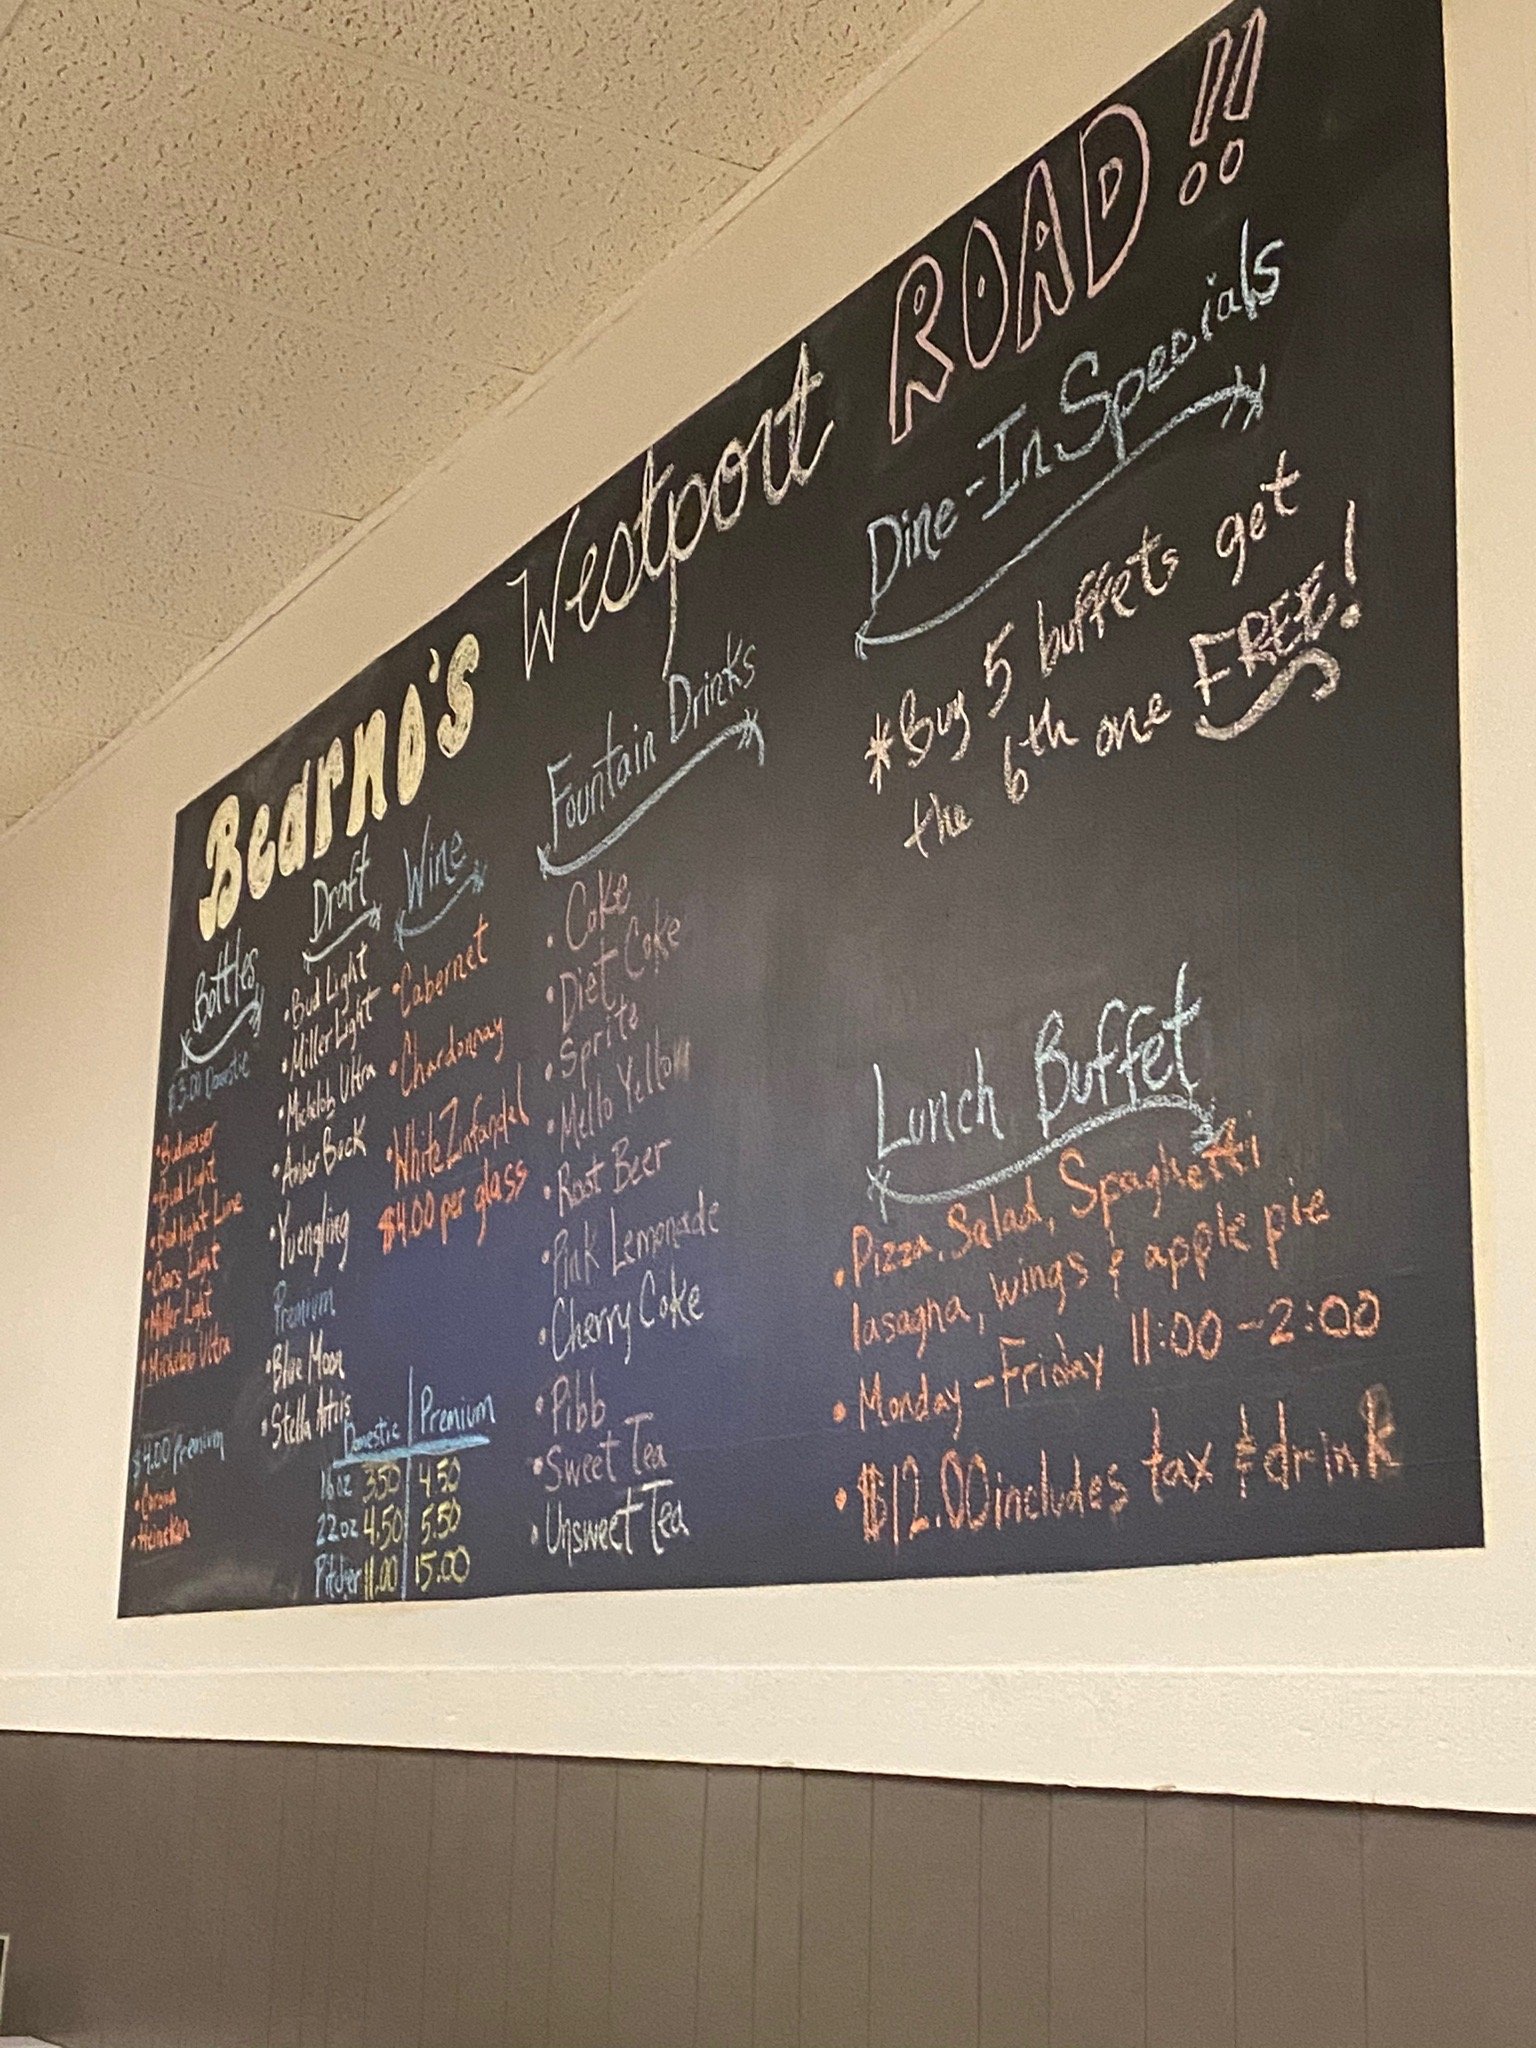 Bearno's Westport ROAD!!
Bottles
$3.00 Domestic
• Budweiser
• Bud Light
• Bud light Lime
• Coors Light
• Miller Light
• Michelob Ultra
$4.00 Premium
• Corona
• Heineken
Draft
• Bud Light
• Miller Light
• Michelob Ultra
• Amber Bock
• Yuengling
Premium
• Blue Moon
• Stella Artois
Domestic | Premium
16oz 3.50 | 4.50
22oz 4.50 | 5.50
Pitcher 11.00 | 15.00
Wine
• Cabernet
• Chardonnay
• White Zinfandel
$4.00 per glass
Fountain Drinks
• Coke
• Diet Coke
• Sprite
• Mello Yellow
• Root Beer
• Pink Lemonade
• Cherry Coke
• Pibb
• Sweet Tea
• Unsweet Tea
Dine-In Specials
* Buy 5 buffets get
the 6th one FREE!
Lunch Buffet
• Pizza, Salad, Spaghetti
lasagna, wings & apple pie
• Monday - Friday 11:00 - 2:00
• $12.00 includes tax & drink